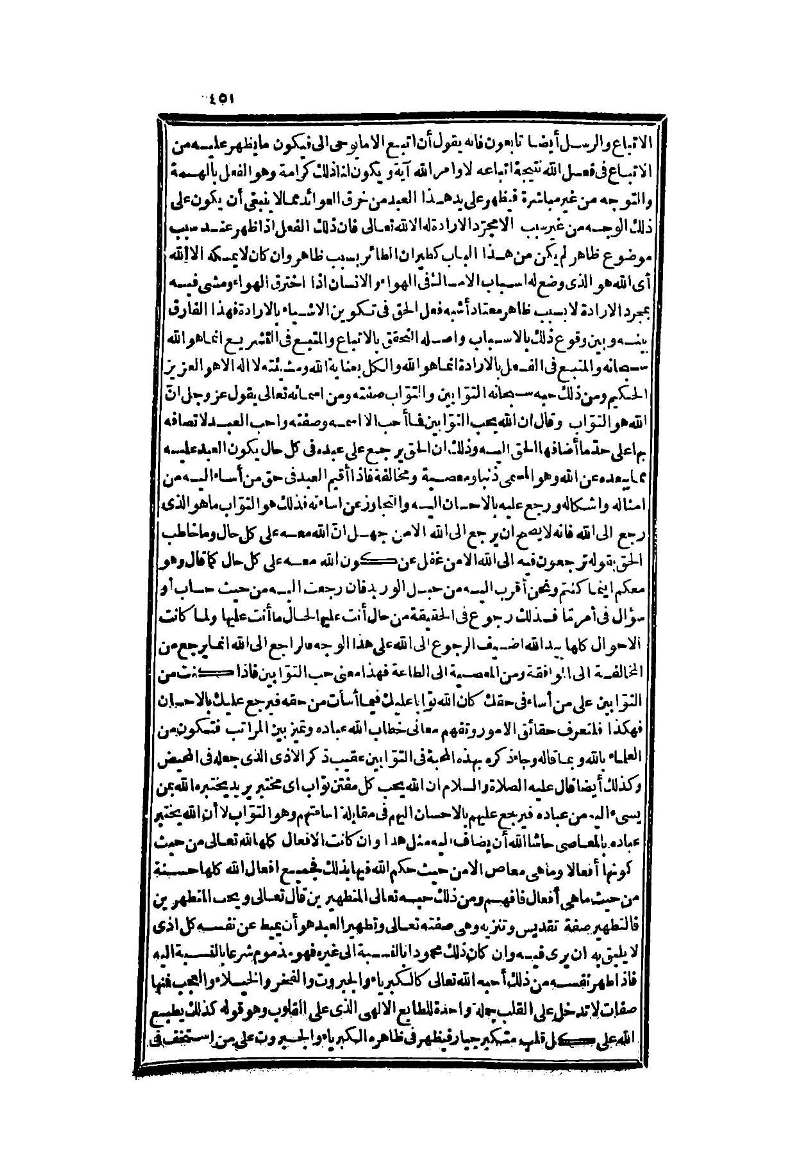 ٤٥١
الاتباع والرسل أيضا تابعون فانه يقول أن اتبع الا ما يوحى الى فيكون ما يظهر عليه من
الاتباع فى فعل الله نتيجة اتباعه لاوامر الله آية ويكون لنا ذلك كرامة وهو الفعل بالهمة
والتوجه من غير مباشرة فيظهر على يد هذا العبد من خرق العوائد مما لا ينبغى أن يكون على
ذلك الوجه من غير سبب الا مجرد الارادة له الا لله تعالى فان ذلك الفعل اذا ظهر عند سبب
موضوع ظاهر لم يكن من هذا الباب كطيران الطائر بسبب ظاهر وان كان لا يمسكه الا الله
أى الله هو الذى وضع له اسباب الامساك فى الهواء والانسان اذا اخترق الهواء ومشى فيه
بمجرد الارادة لا بسبب ظاهر معتاد أشبه فعل الحق فى تكوين الاشياء بالارادة فهذا الفارق
بينه وبين وقوع ذلك بالاسباب واصله التحقق بالاتباع والمتبع فى التشريع انما هو الله
سبحانه والمتبع فى الفعل بالارادة انما هو الله والكل بعناية الله ومشيئته لا اله الا هو العزيز
الحكيم ومن ذلك حبه سبحانه التوابين والتواب صفته ومن اسمائه تعالى يقول عز وجل ان
الله هو التواب وقال ان الله يحب التوابين فما أحب الا اسمه وصفته واحب العبد لاتصافه
بها على حد ما أضافها الحق اليه وذلك ان الحق يرجع على عبده فى كل حال يكون العبد عليه
مما يبعده عن الله وهو المسمى ذنبا ومعصية ومخالفة فاذا أقيم العبد فى حق من أساء اليه من
امثاله واشكاله ورجع عليه بالاحسان اليه والتجاوز عن اساءته فذلك هو التواب ما هو الذى
رجع الى الله فانه لا يصح ان يرجع الى الله الا من جهل ان الله معه على كل حال وما خاطب
الحق بقوله ترجعون فيه الى الله الا من غفل عن كون الله معه على كل حال كما قال وهو
معكم اينما كنتم ونحن أقرب اليه من حبل الوريد فان رجعت اليه من حيث حساب أو
سؤال فى أمر ما فذلك رجوع فى الحقيقة من حال أنت عليها الحال ما أنت عليها ولما كانت
الاحوال كلها بيد الله اضيف الرجوع الى الله على هذا الوجه فالراجع الى الله انما يرجع من
المخالفة الى الموافقة ومن المعصية الى الطاعة فهذا معنى حب التوابين فاذا كنت من
التوابين على من أساء فى حقك كان الله توابا عليك فيما أسأت من حقه فيرجع عليك بالاحسان
فهكذا فلتعرف حقائق الامور وتفهم معانى خطاب الله عباده وتميز بين المراتب فتكون من
العلماء بالله وبما قاله وجاء ذكره بهذه المحبة فى التوابين عقيب ذكر الاذى الذى جعله فى المحيض
وكذلك أيضا قال عليه الصلاة والسلام ان الله يحب كل مفتن تواب اى مختبر يريد يختبره الله بمن
يسىء اليه من عباده فيرجع عليهم بالاحسان اليهم فى مقابلة اساءتهم وهو التواب لا أن الله يختبر
عباده بالمعاصى حاشا الله أن يضاف اليه مثل هذا وان كانت الافعال كلها لله تعالى من حيث
كونها أفعالا وما هى معاص الا من حيث حكم الله فيها بذلك فجميع افعال الله كلها حسنة
من حيث ما هى أفعال فافهم ومن ذلك حبه تعالى المتطهرين قال تعالى ويحب المتطهرين
فالتطهير صفة تقديس وتنزيه وهى صفته تعالى وتطهير العبد هو أن يميط عن نفسه كل اذى
لا يليق به ان يرى فيه وان كان ذلك محمودا بالنسبة الى غيره فهو مذموم شرعا بالنسبة اليه
فاذا طهر نفسه من ذلك أحبه الله تعالى كالكبرياء والجبروت والفخر والخيلاء والعجب فمنها
صفات لا تدخل على القلب جملة واحدة للطابع الالهى الذى على القلوب وهو قوله كذلك يطبع
الله على كل قلب متكبر جبار فيظهر فى ظاهره الكبرياء والجبروت على من استخف فى